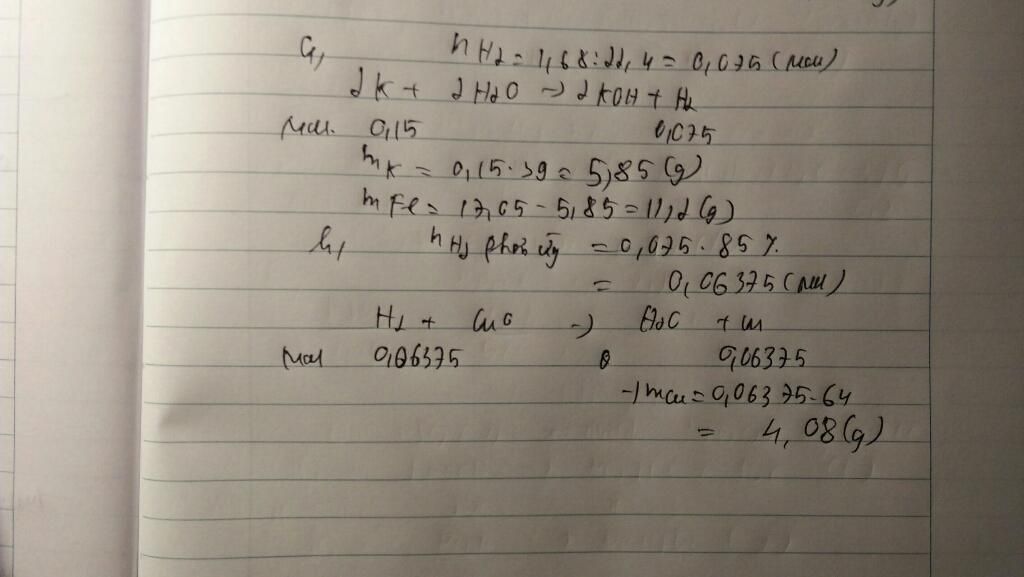 a, nH2 = 1,68 : 22,4 = 0,075 (mol)
2K + 2H2O -> 2KOH + H2
mol. 0,15 0,075
mK = 0,15 . 39 = 5,85 (g)
mFe = 17,05 - 5,85 = 11,2 (g)
b, nH2 phản ứng = 0,075 . 85%.
= 0,06375 (mol)
H2 + CuO -> H2O + Cu
mol 0,06375 0,06375
-> mCu = 0,06375 . 64
= 4,08 (g)